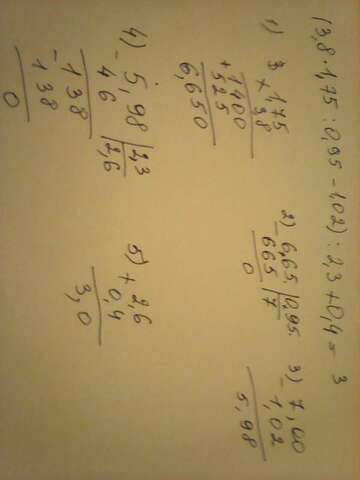 (3,8·1,75:0,95-1,02):2,3+0,4= 3
1) × 1,75
3,8
+ 1400
525
6,650
2) - 6,65 | 0,95
665 | 7
0
3) - 7,00
1,02
5,98
4) - 5,98 | 2,3
4 6 | 2,6
- 138
138
0
5) + 2,6
0,4
3,0